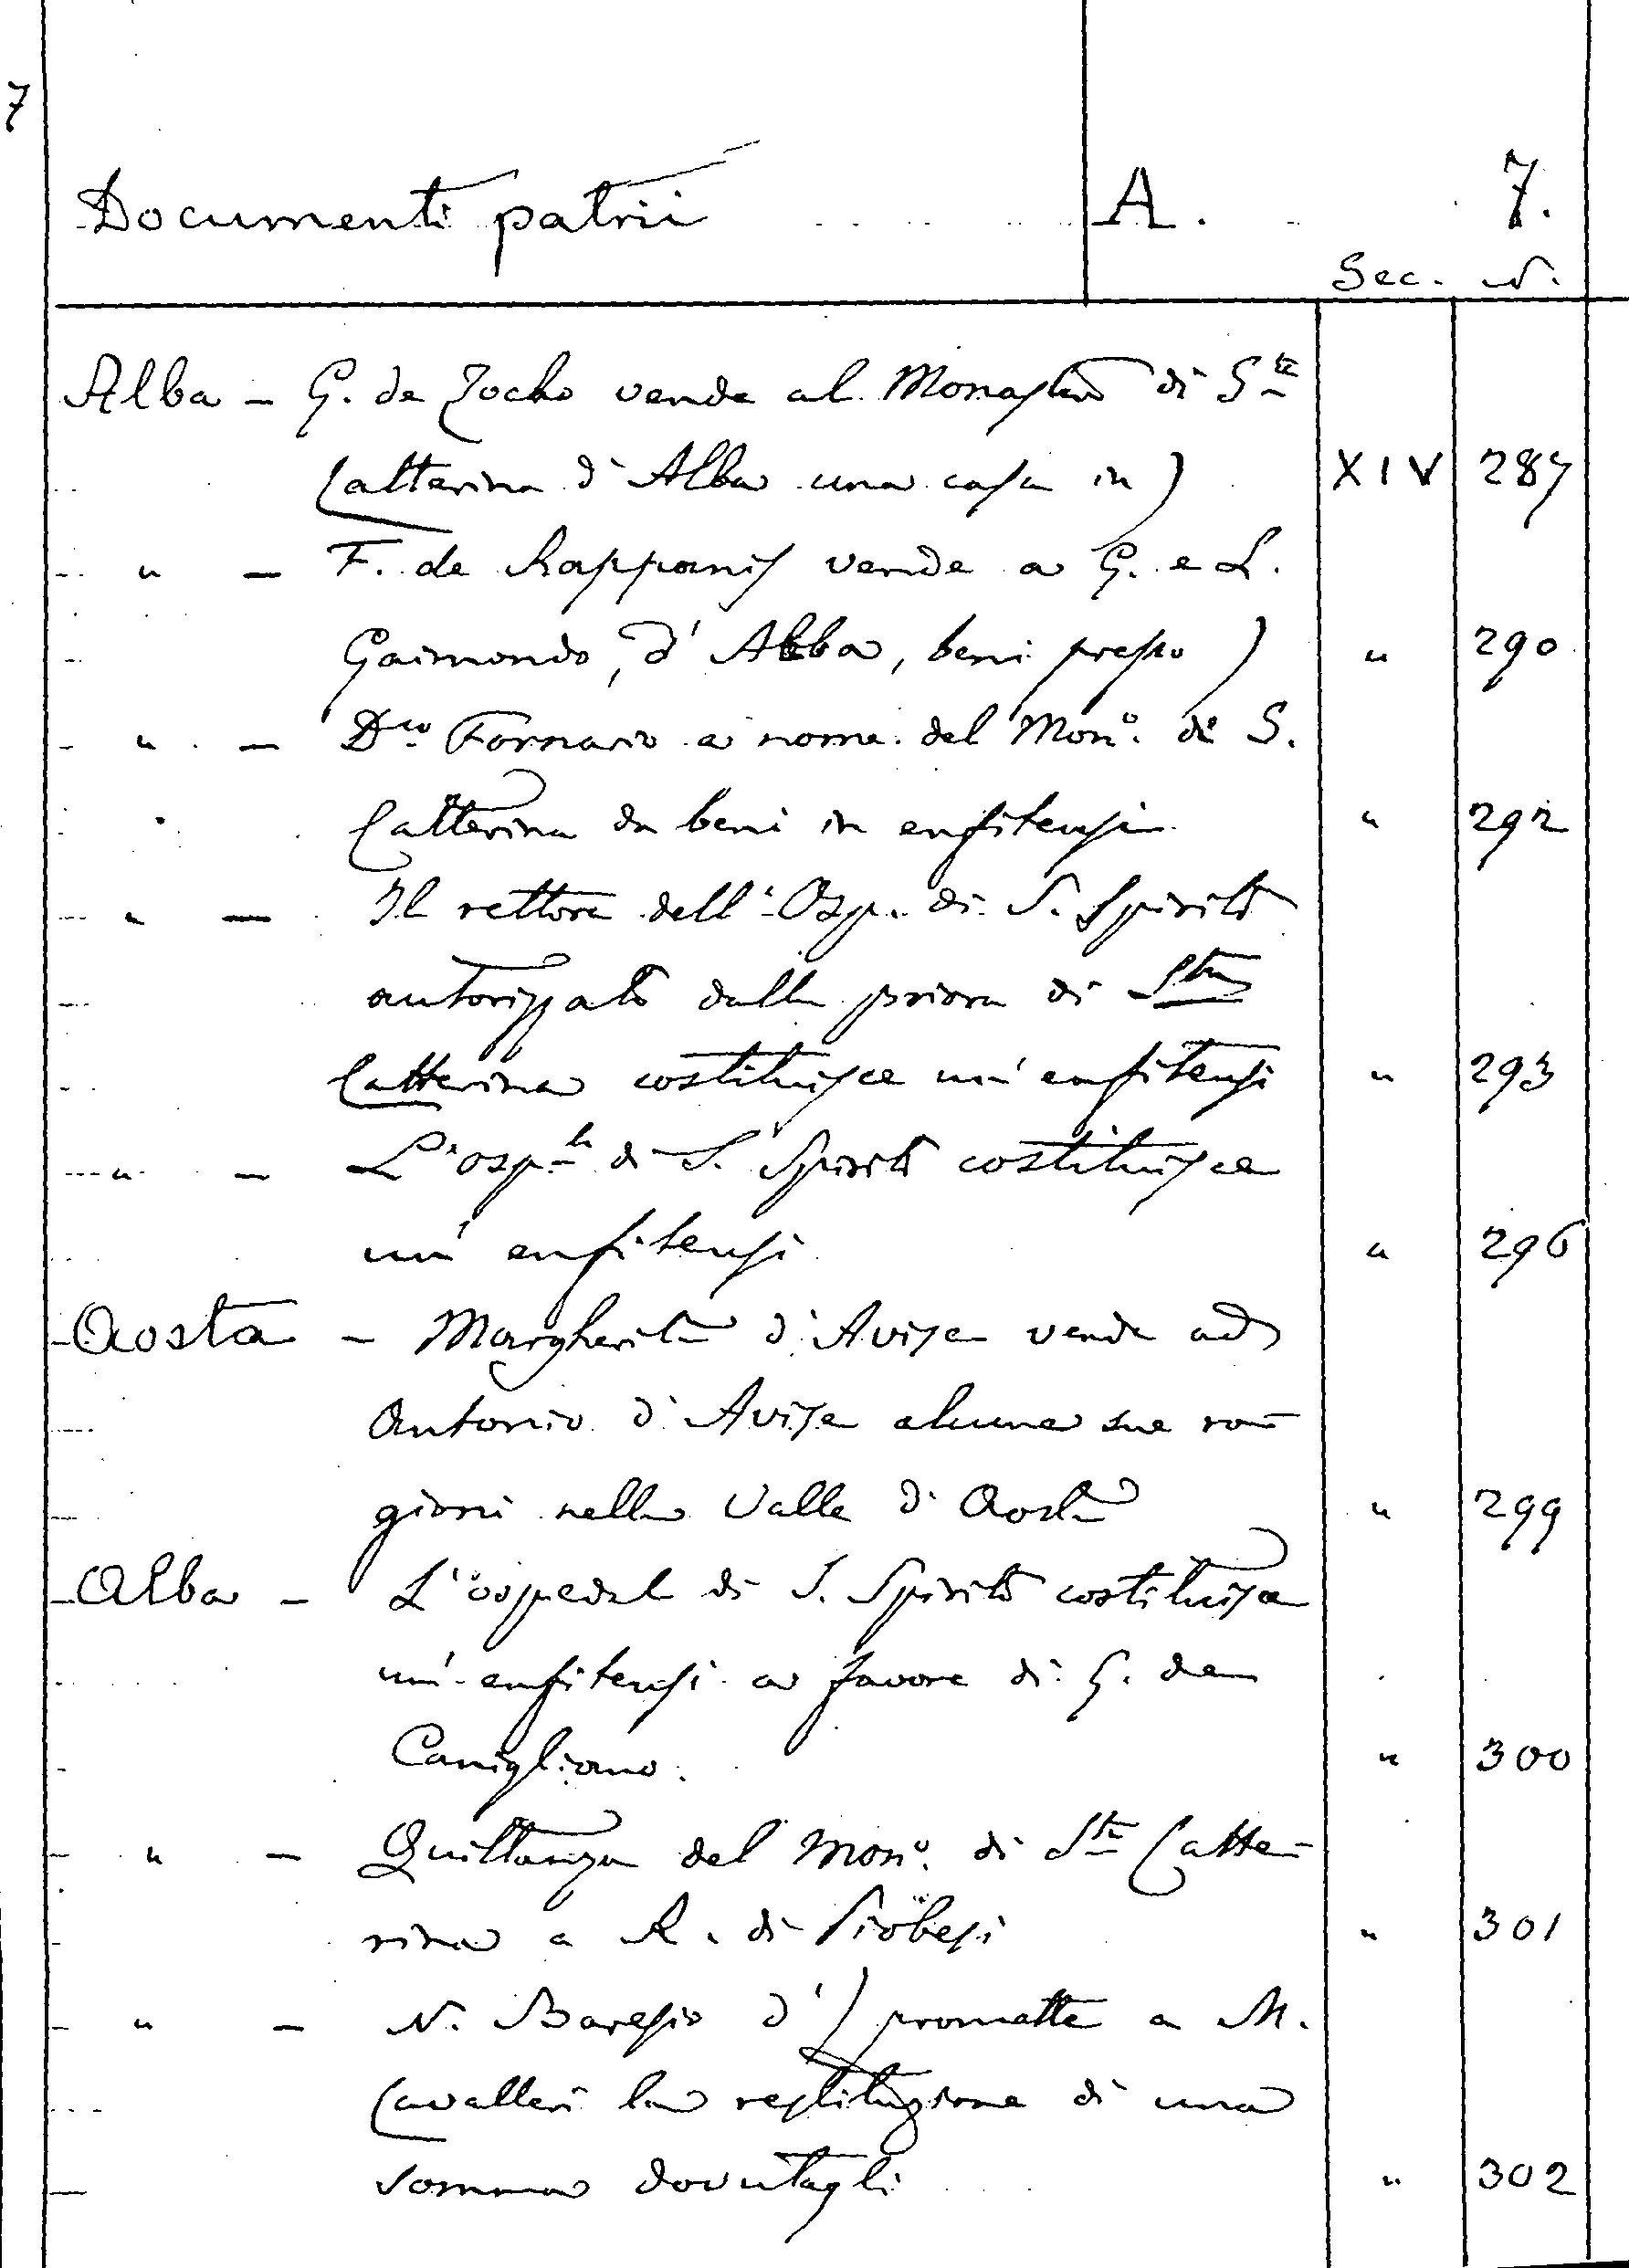 7
Documenti patrii A. 7.
Sec. N.
Alba - G. de Zocho vende al Monastero di Sta
Catterina d'Alba una casa in) XIV 287
" - F. de Rapponis vende a G. e L.
Gaimondo, d'Alba, beni presso) " 290
" - Dco Fornaro a nome del Mono. di S.
Catterina da beni in enfiteusi " 292
" - Il rettore dell'Osp. di S. Spirito
autorizzato dalla priora di Sta
Catterina costituisce un'enfiteusi " 293
" - L'osple di S. Spirito costituisce
un'enfiteusi " 296
Aosta - Margherita d'Avise vende ad
Antonio d'Avise alcune sue ra-
gioni nella Valle d'Aosta " 299
Alba - L'ospedale di S. Spirito costituisce
un'enfiteusi a favore di G. de
Canigliano. " 300
" - Quittanza del Mono. di Sta Catte-
rina a R. di Piobesi " 301
" - N. Baresio d') promette a M.
Cavalleri la restituzione di una
somma dovutagli " 302